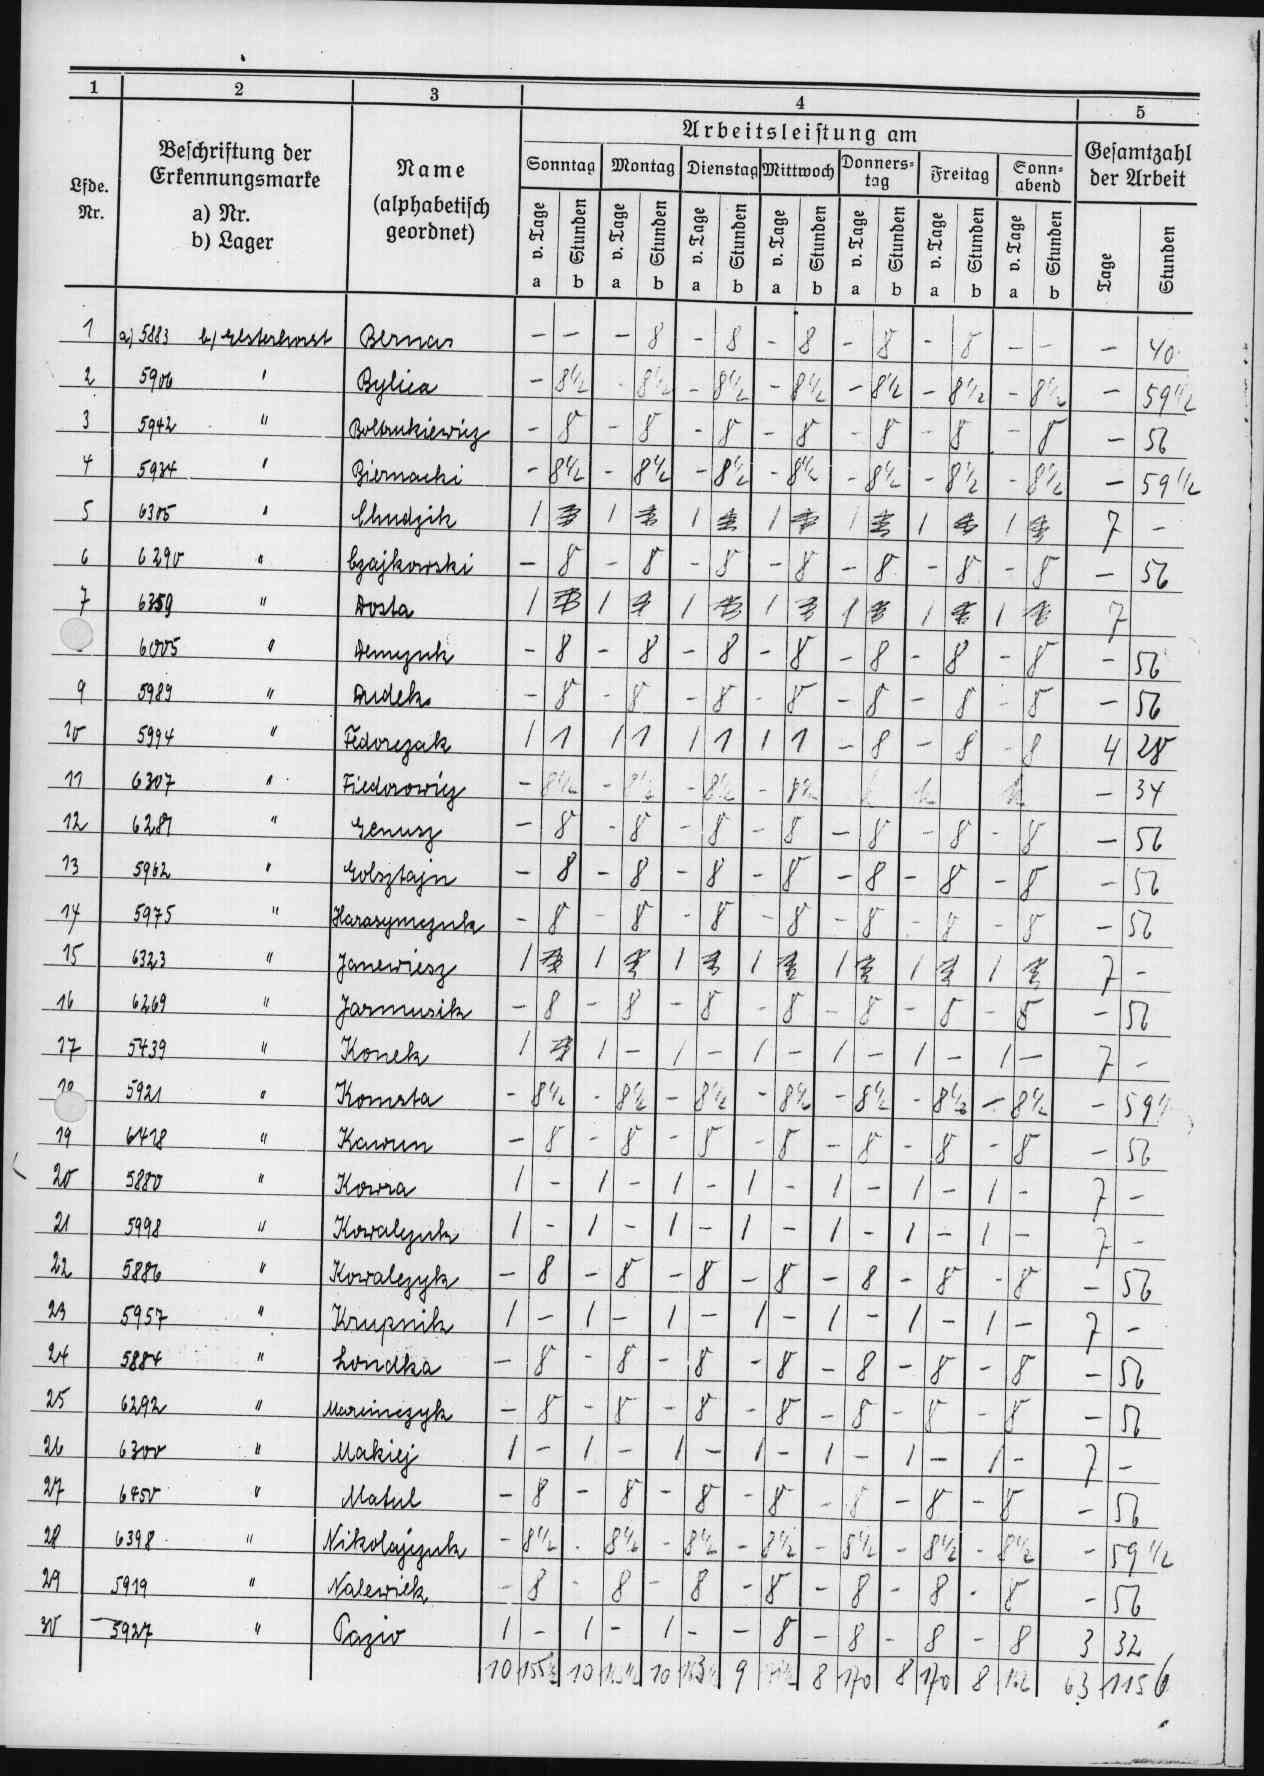 1 2 3 4 5
Lfde. Nr.
Beschriftung der Erkennungsmarke
a) Nr.
b) Lager
Name
(alphabetisch geordnet)
Arbeitsleistung am
Sonntag Montag Dienstag Mittwoch Donners-tag Freitag Sonn-abend
Gesamtzahl der Arbeit
v. Tage Stunden v. Tage Stunden v. Tage Stunden v. Tage Stunden v. Tage Stunden v. Tage Stunden v. Tage Stunden Tage Stunden
a b a b a b a b a b a b a b
1 a) 5883 b) Elsterhorst Bernas – – – 8 – 8 – 8 – 8 – 8 – – – 40
2 5906 " Bylica – 8½ – 8½ – 8½ – 8½ – 8½ – 8½ – 8½ – 59½
3 5942 " Bolonkiewicz – 8 – 8 – 8 – 8 – 8 – 8 – 8 – 56
4 5934 " Biernacki – 8½ – 8½ – 8½ – 8½ – 8½ – 8½ – 8½ – 59½
5 6305 " Chudzik 1 1 1 1 1 1 1 7 –
6 6290 " Czajkowski – 8 – 8 – 8 – 8 – 8 – 8 – 8 – 56
7 6359 " Dosta 1 1 1 1 1 1 1 7
6005 " Demczuk – 8 – 8 – 8 – 8 – 8 – 8 – 8 – 56
9 5989 " Dudek – 8 – 8 – 8 – 8 – 8 – 8 – 8 – 56
10 5994 " Fedorczak 1 1 1 1 1 1 1 1 – 8 – 8 – 8 4 28
11 6307 " Fiedorowicz – 8½ – 8½ – 8½ – 8½ – 34
12 6287 " Genusz – 8 – 8 – 8 – 8 – 8 – 8 – 8 – 56
13 5962 " Golsztajn – 8 – 8 – 8 – 8 – 8 – 8 – 8 – 56
14 5975 " Harasymczuk – 8 – 8 – 8 – 8 – 8 – 8 – 8 – 56
15 6323 " Janewicz 1 1 1 1 1 1 1 7 –
16 6269 " Jarmusik – 8 – 8 – 8 – 8 – 8 – 8 – 8 – 56
17 5439 " Konek 1 1 – 1 – 1 – 1 – 1 – 1 – 7 –
5921 " Komsta – 8½ – 8½ – 8½ – 8½ – 8½ – 8½ – 8½ – 59½
19 6418 " Kawun – 8 – 8 – 8 – 8 – 8 – 8 – 8 – 56
20 5880 " Kowra 1 – 1 – 1 – 1 – 1 – 1 – 1 – 7 –
21 5998 " Kowalczuk 1 – 1 – 1 – 1 – 1 – 1 – 1 – 7 –
22 5886 " Kowalczyk – 8 – 8 – 8 – 8 – 8 – 8 – 8 – 56
23 5957 " Krupnik 1 – 1 – 1 – 1 – 1 – 1 – 1 – 7 –
24 5884 " Londka – 8 – 8 – 8 – 8 – 8 – 8 – 8 – 56
25 6292 " Marcinczyk – 8 – 8 – 8 – 8 – 8 – 8 – 8 – 56
26 6300 " Makiej 1 – 1 – 1 – 1 – 1 – 1 – 1 – 7 –
27 6450 " Matul – 8 – 8 – 8 – 8 – 8 – 8 – 8 – 56
28 6398 " Nikolajczuk – 8½ – 8½ – 8½ – 8½ – 8½ – 8½ – 8½ – 59½
29 5919 " Nalewiek – 8 – 8 – 8 – 8 – 8 – 8 – 8 – 56
30 5927 " Pazio 1 – 1 – 1 – – 8 – 8 – 8 – 8 3 32
10 155½ 10 10 9 8 170 8 170 8 162 63 1156